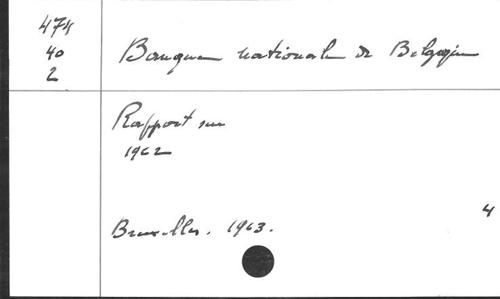 474
40
2
Banque nationale de Belgique
Rapport sur
1962
Bruxelles. 1963.
4